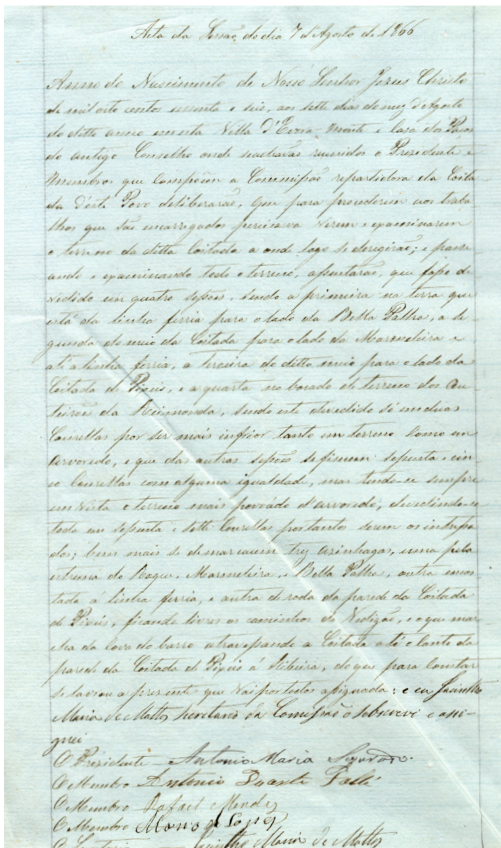 Acta da Sessaõ do dia 7 d'Agosto de 1866
Anno do Nascimento de Nosso Senhor Jezus Christo
de mil oito centos secenta e seis, aos sette dias do mez d'Agosto
do ditto anno nesta Villa d'Evora Monte e Caza dos Paços
do antigo Conselho onde se achavaõ reunidos o Presidente e
Membros que compõem a Commissaõ repartidora da Coita
da d'este Povo deliberaraõ, que para procederem aos traba
lhos que saõ encarregados percizava verem e examinarem
o terreno da ditta Coitada a onde logo se derigiraõ; e passe
ando e examinando todo o terreno, assentaraõ, que fosse de
vedido em quatro sepões, sendo a primeira na terra que
está da linha ferria para o lado da Bella Palha, a se
gunda do meio da Coitada para o lado da Marmeleira e
até a linha ferria, a terceira do ditto meio para o lado da
Coitada de Pixeis, e a quarta no bocado de terreno dos Ou
teirões da sendo este devedido só meduas
Courellas por ser mais infrior tanto em terreno como em
arvoredo, e que das outras sepões se fizessem sepenta e cin
co Courellas com alguma igualdade, mas tendo-se sempre
em vista o terreno mais povoado d'arvoredo, devedindo-se
todo em sepenta e sette Courellas portanto serem os
bem mais se demarcassem trez azinhagas, uma pela
extrema do Marmeleira, e Bella Palha, outra encos
tada á linha ferria, e outra de roda da parede da Coitada
de Pixeis, ficando livres os caminhos da e o que mar
cha da do barro atravepando a Coitada até o canto da
parede da Coitada de Pixeis á Ribeira, do que para constar
se lavrou a prezente que vai por todos apignada: e eu Jacintho
Maria de Mattos Secretario da Comissaõ o sobscrevi e assi-
gnei
O Presidente – Antonio Maria
O Membro Antonio Duarte
O Membro Rafael Mendes
O Membro
Jacintho Maria de Mattos